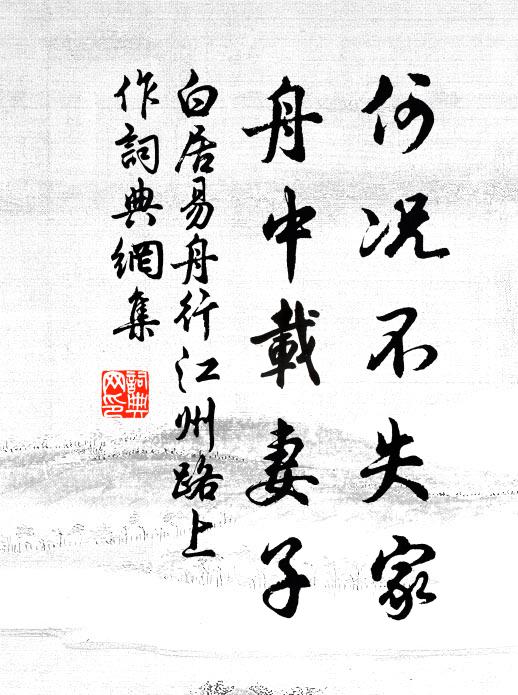 何況不失家
舟中載妻子
白居易舟行江州路上
作詞典網集
詞典
网印